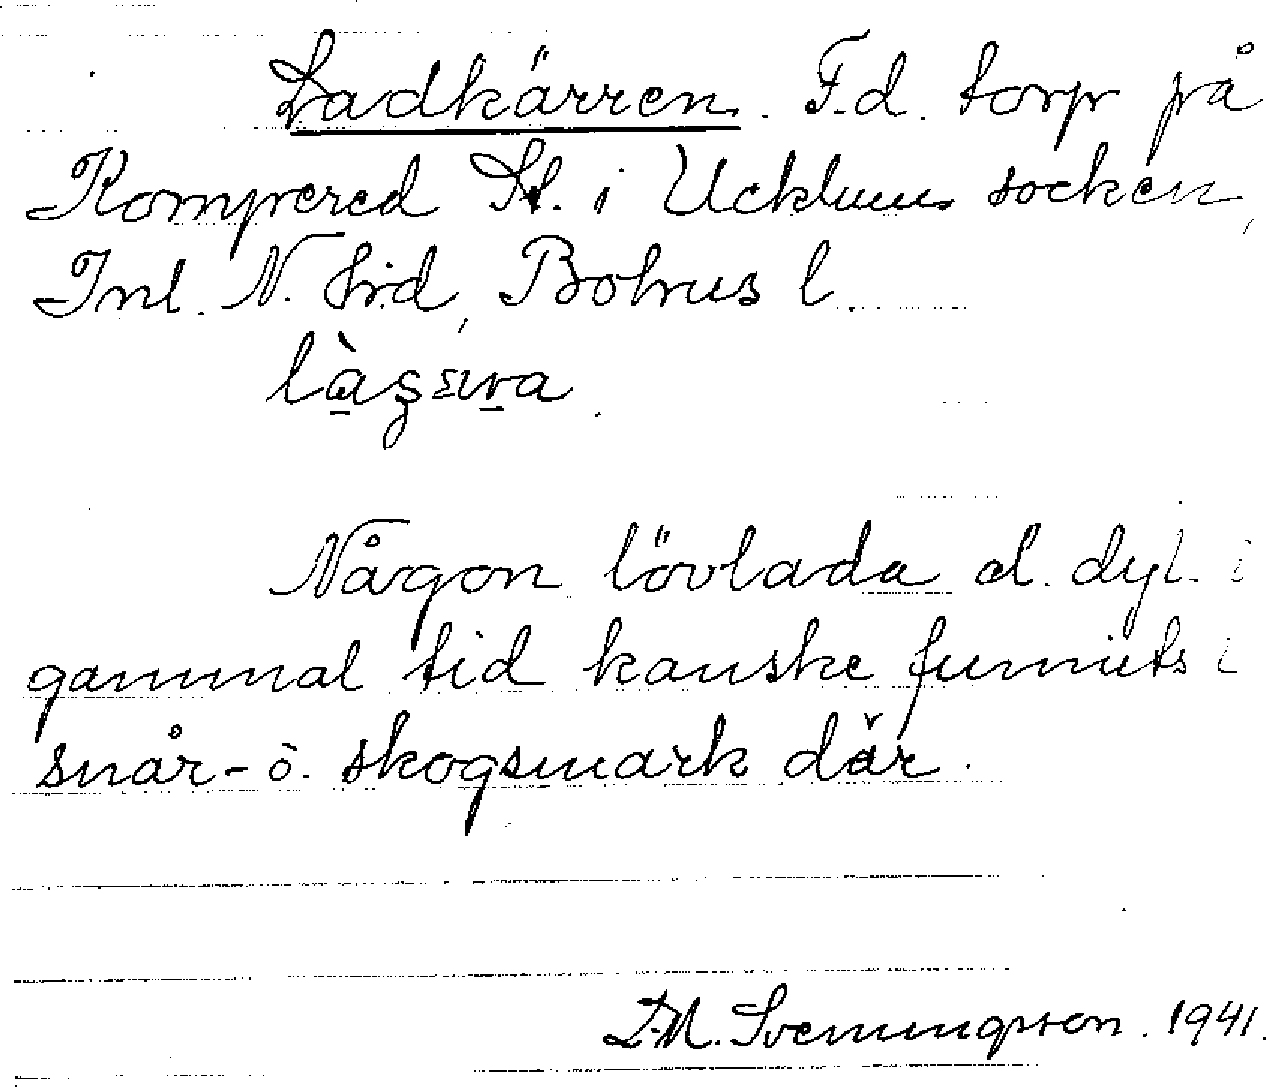 Ladkärren. F.d. torp på
Kompered St. i Ucklums socken,
Inl. N. hrd, Bohus l.
Någon lövlada el. dyl. i
gammal tid kanske funnits i
snår- o. skogsmark där.
J.M. Svenungsson. 1941.